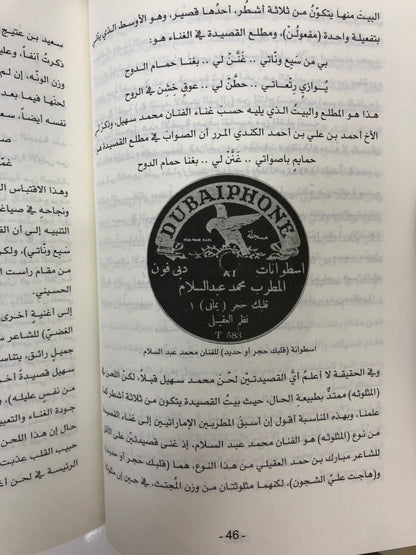 البيت منها يتكوّن من ثلاثة أشطُر، أحدُها قصير، وهو الأوسط الذي يأتي
بتفعيلة واحدة (مفعولُنْ)، ومطلع القصيدة في الغناء هو:
بي من سَيع ونّاتي .. غَنَّنْ لي .. بغنا حمام الدوح
يُوازي رنّعاتي .. حطَّنْ لي .. عوق خشن في الروح
هذا هو المطلع والبيت الذي يليه حسبَ غناء الفنان محمد سهيل، وذكرَ لي
الأخ أحمد بن علي بن أحمد الكندي المرر أن الصوابَ في مطلع القصيدة هو:
حمايم بأصواتي .. غَنَّنْ لي .. بغنا حمام الدوح
DUBAIPHONE
مسجلة
اسطوانات
دبي فون
A1
المطرب محمد عبدالسلام
قلبك حجر (يماني) ١
نظم العقيلي
T 583
اسطوانة (قلبك حجر أو حديد) للفنان محمد عبد السلام
وفي الحقيقة لا أعلمُ أيَّ القصيدتين لحّن محمد سهيل قبلاً، لكنّ اللحن
(المثلوثه) ممتدٌّ بطبيعة الحال، حيث بيتُ القصيدة يتكون من ثلاثة أشطر كما
علمنا، وبهذه المناسبة أقول إن أسبقَ المطربين الإماراتيين إلى غناء القصيدة
من نوع (المثلوثه) هو الفنان محمد عبد السلام، إذ غنى قصيدتين على الأقل
للشاعر مبارك بن حمد العقيلي من هذا النوع، هما (قلبك حجر أو حديد)
و(هاجت عليّ الشجون)، لكنهما مثلوثتان من وزن المجتث، في حين إن مثلوثة
- 46 -
سعيد بن عتيج
ذكرتُ آنفاً،
وزن الونّه، إن لم
لحنها فيما بعد
نفسه أيضاً،
وهذا الاقتباس
ونجاحه في صياغة
التنبيه إلى أن
من مقام راست
الحسيني.
إلى أغنية أخرى
للشاعر
جميل رائق،
سهيل قصيدة
من نفس
جودة الغناء والتعبير
حال إن هذا اللحن
حبيب القلب عذبت
الرئيسة في لحن